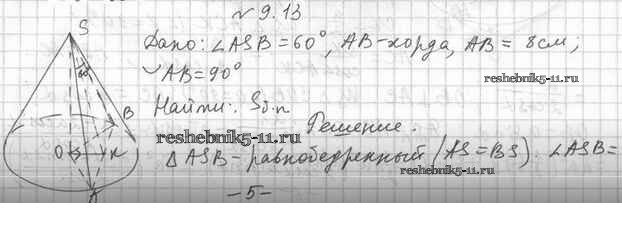 № 9.13
S
Дано: ∠ASB = 60°, AB - хорда, AB = 8 см;
◡AB = 90°
reshebnik5-11.ru
60°
Найти: Sб.п
B
Решение.
reshebnik5-11.ru
O
K
ΔASB - равнобедренный (AS = BS). ∠ASB =
reshebnik5-11.ru
A
-5-